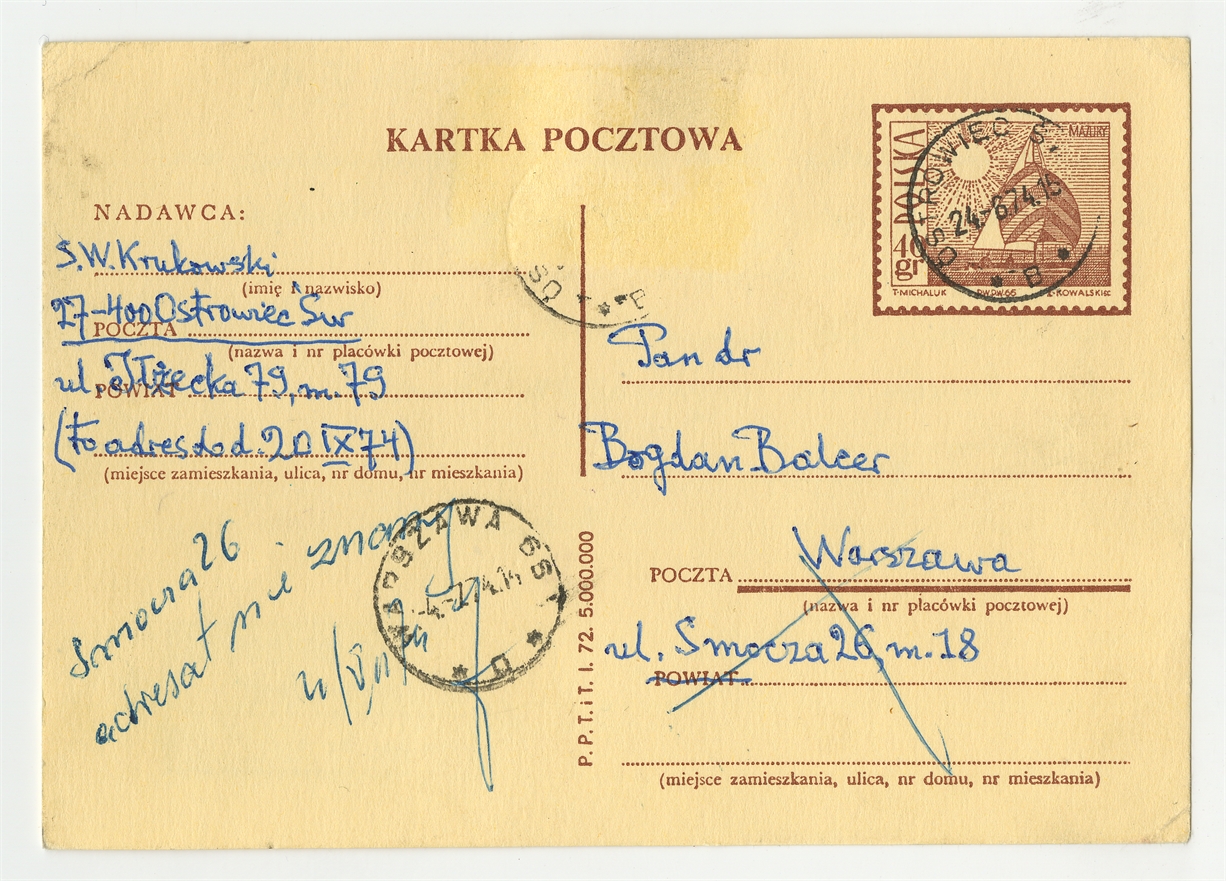 KARTKA POCZTOWA
POLSKA
MAZURY
40
gr
T·MICHALUK PWPW·65 Z·KOWALSKI
OSTROWIEC Ś.
24.-6.74.15
* B *
NADAWCA:
S.W. Krukowski
(imię i nazwisko)
27-400 Ostrowiec Św
POCZTA
(nazwa i nr placówki pocztowej)
ul. Iłżecka 79, m. 79
POWIAT
(to adres do d. 20 IX 74)
(miejsce zamieszkania, ulica, nr domu, nr mieszkania)
OS
* B
Pan dr
Bogdan Balcer
Warszawa
POCZTA
(nazwa i nr placówki pocztowej)
ul. Smocza 26, m. 18
POWIAT
(miejsce zamieszkania, ulica, nr domu, nr mieszkania)
P.P.T. i T. I. 72. 5.000.000
WARSZAWA
* D *
Smocza 26
adresat nie znany